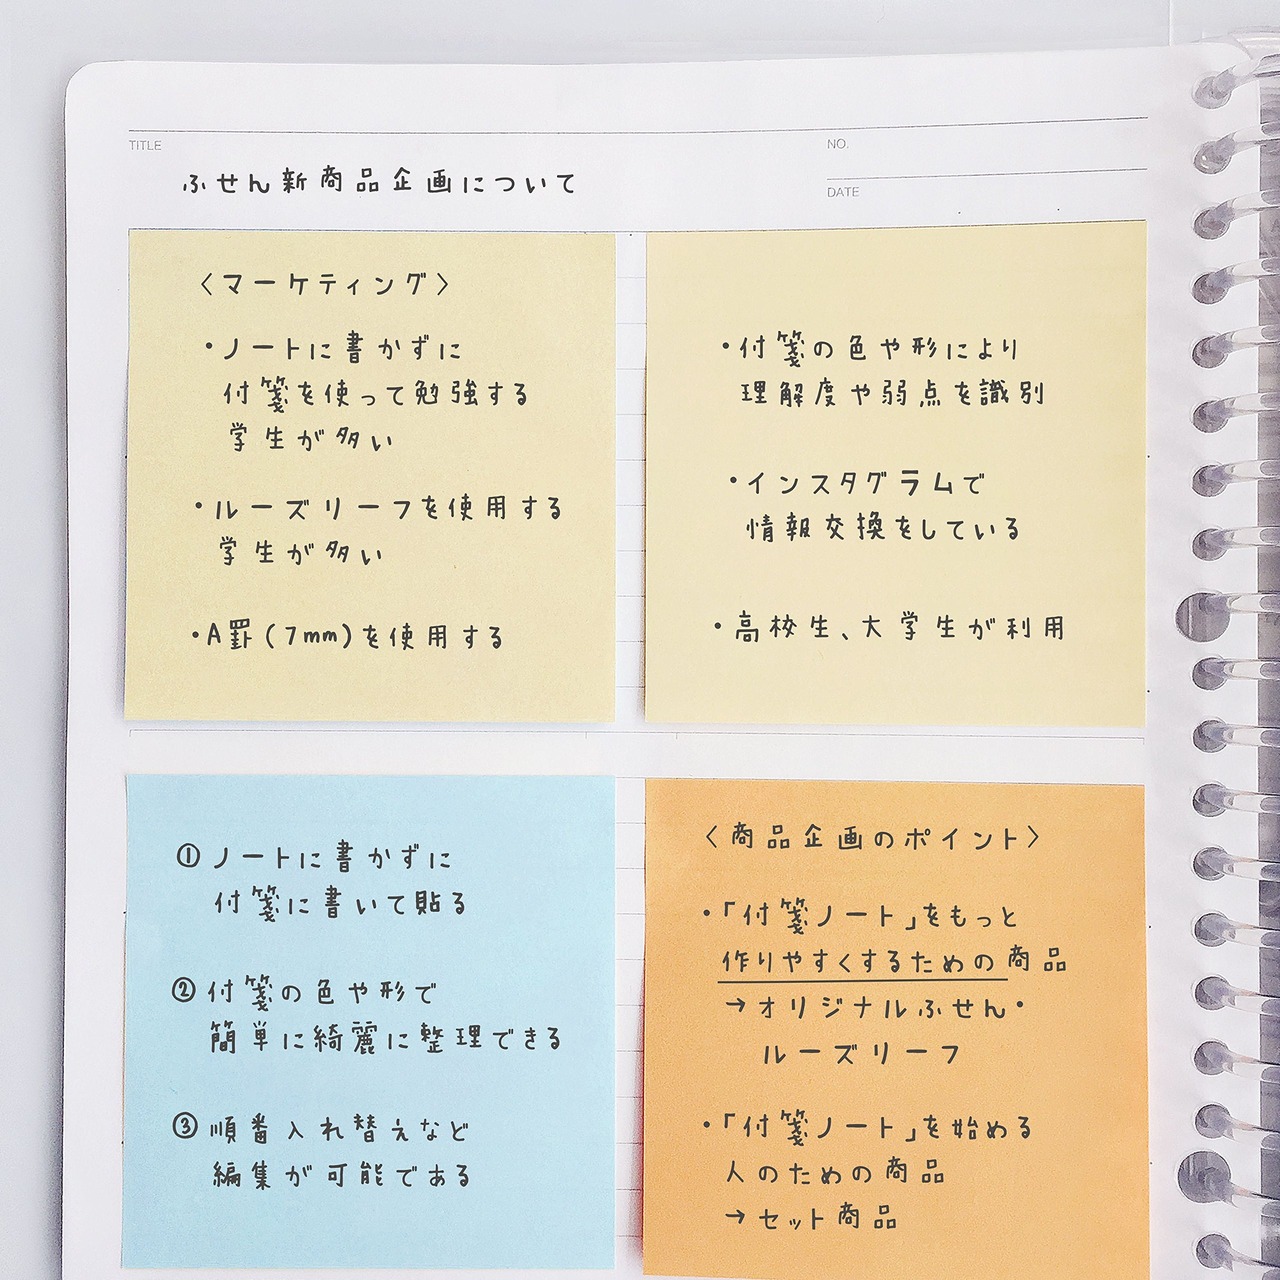 TITLE
NO.
DATE
ふせん新商品企画について
〈マーケティング〉
・ノートに書かずに
付箋を使って勉強する
学生が多い
・ルーズリーフを使用する
学生が多い
・A罫(7mm)を使用する
・付箋の色や形により
理解度や弱点を識別
・インスタグラムで
情報交換をしている
・高校生、大学生が利用
①ノートに書かずに
付箋に書いて貼る
②付箋の色や形で
簡単に綺麗に整理できる
③順番入れ替えなど
編集が可能である
〈商品企画のポイント〉
・「付箋ノート」をもっと
作りやすくするための商品
→オリジナルふせん・
ルーズリーフ
・「付箋ノート」を始める
人のための商品
→セット商品